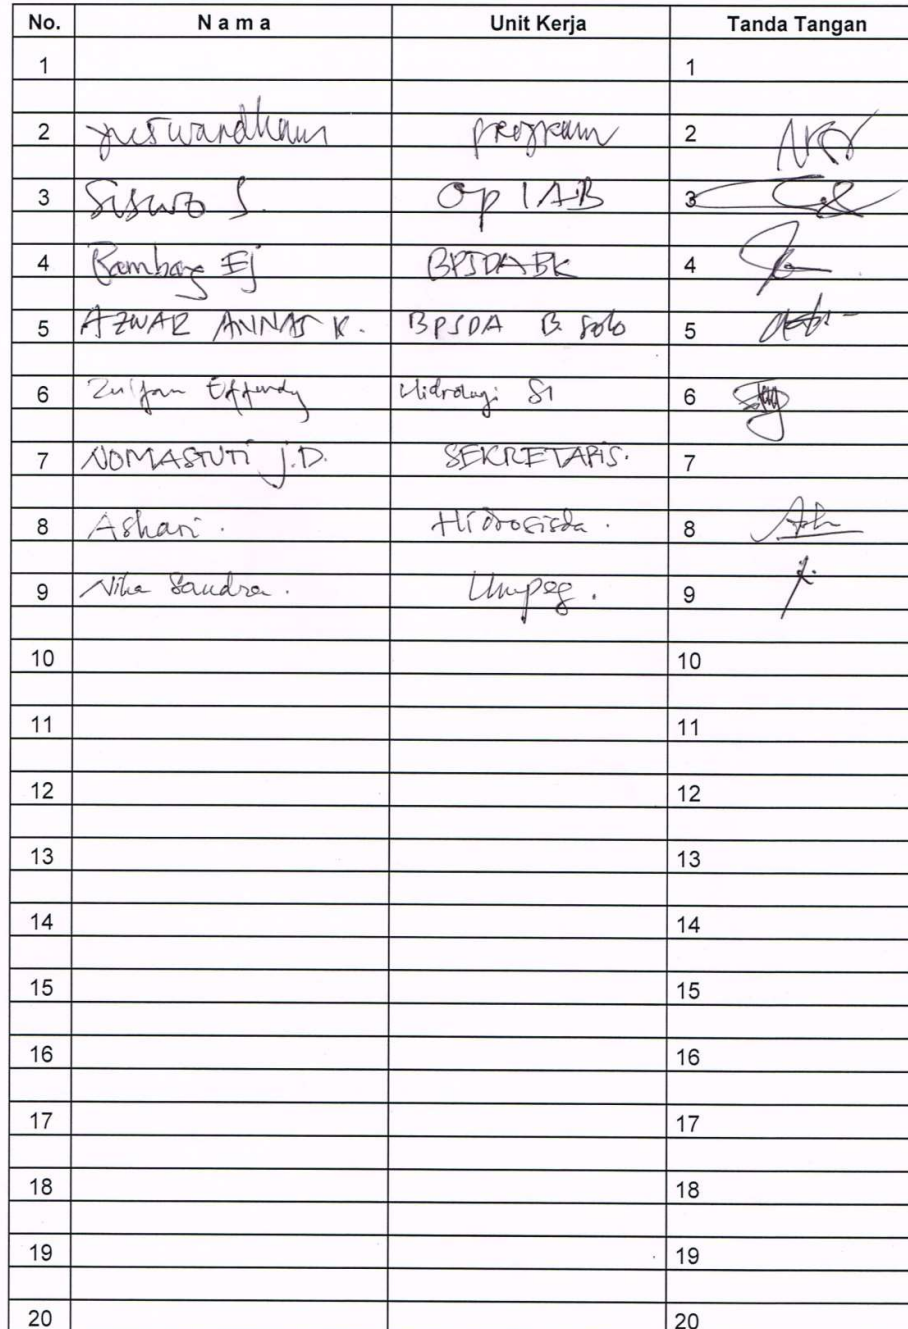 No. N a m a Unit Kerja Tanda Tangan
1 1
2 program 2
3 Siswo S. Op IAB 3
4 Bambang Ej BPSDABK 4
5 AZWAR ANNAS K. BPSDA B. Solo 5
6 Zulfan Effendy Hidrologi S1 6
7 NOMASTUTI J.D. SEKRETARIS. 7
8 Ashari. Hidrosisda. 8
9 Nika Sandra. Umpeg. 9
10 10
11 11
12 12
13 13
14 14
15 15
16 16
17 17
18 18
19 19
20 20